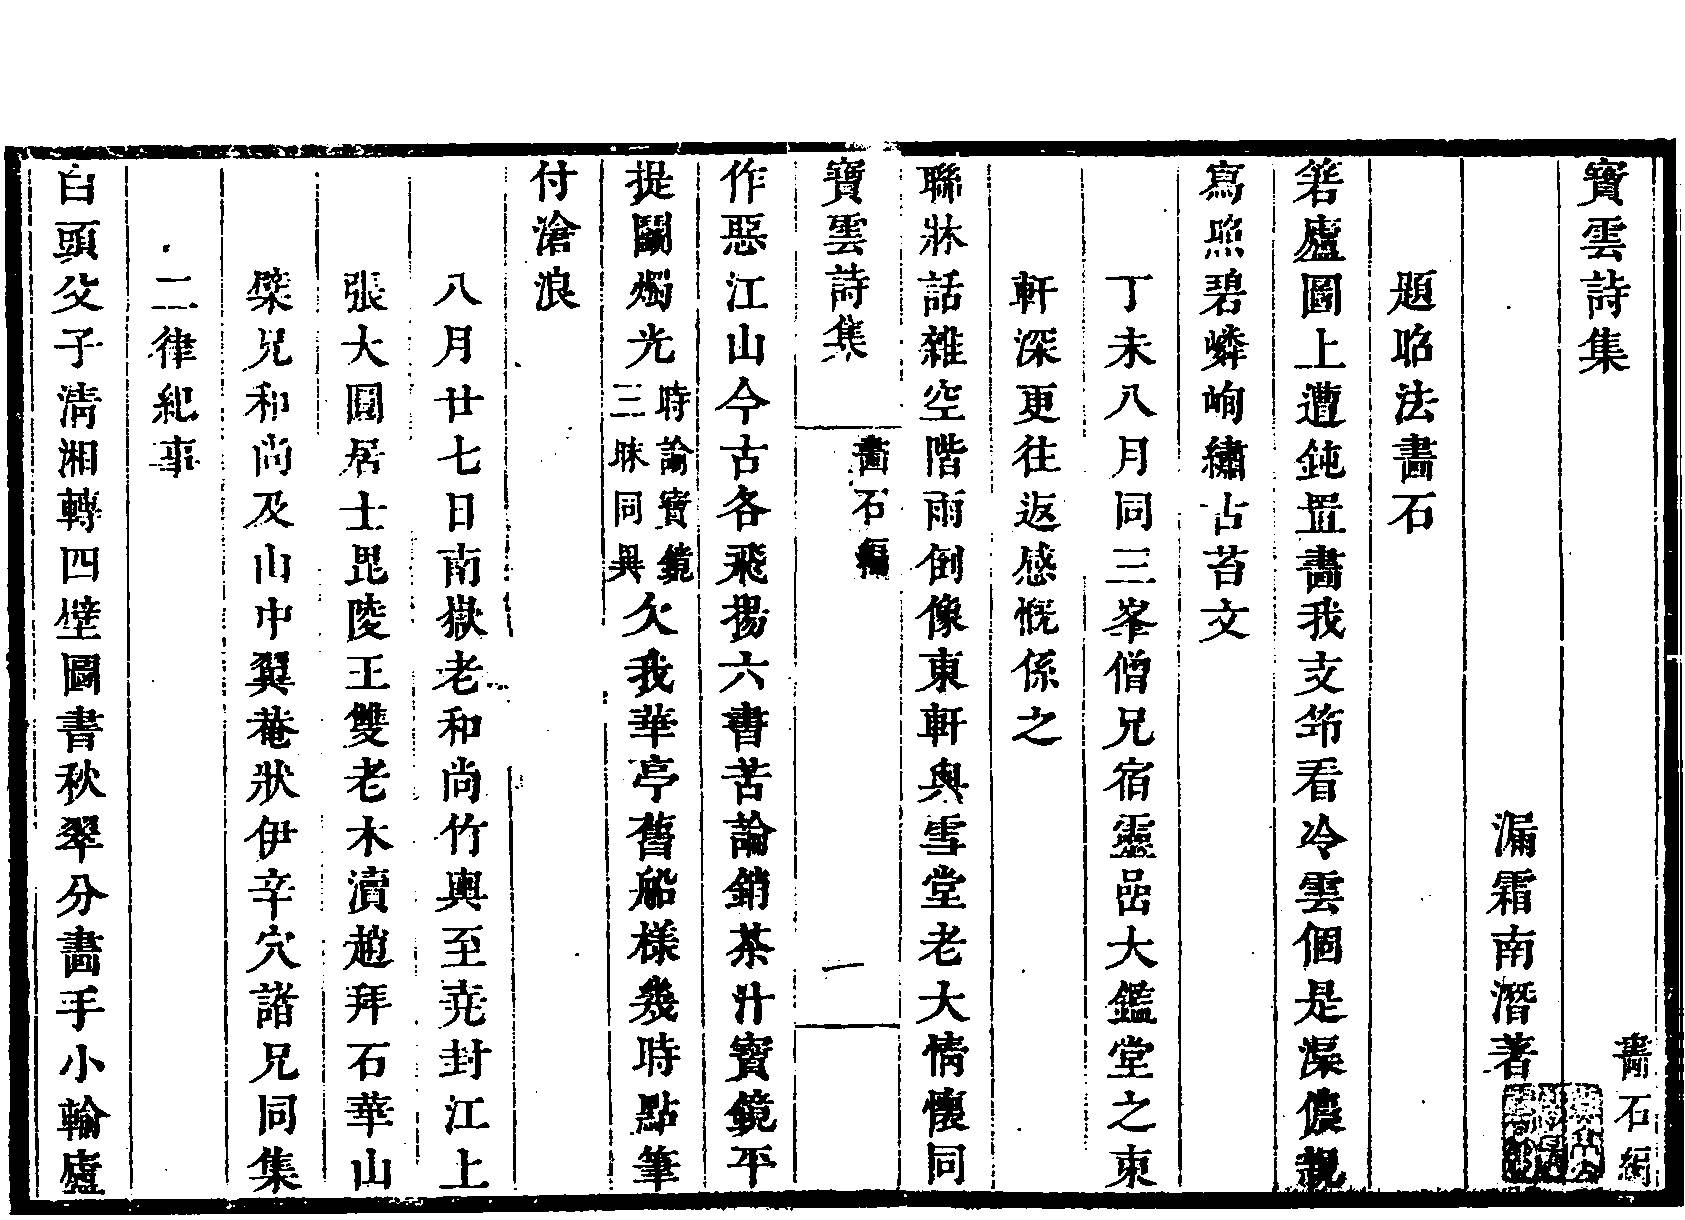 寶雲詩集
畵石編
漏霜南潛著
題昭法畵石
箬廬圖上遭鈍置畵我支筇看冷雲個是深儂親
寫照碧嶙峋繡古苔文
丁未八月同三峯僧兄宿靈嵒大鑑堂之東
軒深更往返感慨係之
聯牀話雜空階雨倒像東軒與雪堂老大情懷同
寶雲詩集
畵石編
一
作惡江山今古各飛揚六書苦論銷茶汁寶鏡平
提鬭燭光時論寶鏡三昧同異久我華亭舊船樣幾時點筆
付滄浪
八月廿七日南嶽老和尚竹輿至堯封江上
張大圓居士毘陵王雙老木瀆趙拜石華山
檗兄和尚及山中翼菴狀伊辛穴諸兄同集
二律紀事
白頭父子清湘轉四壁圖書秋翠分畵手小輪廬